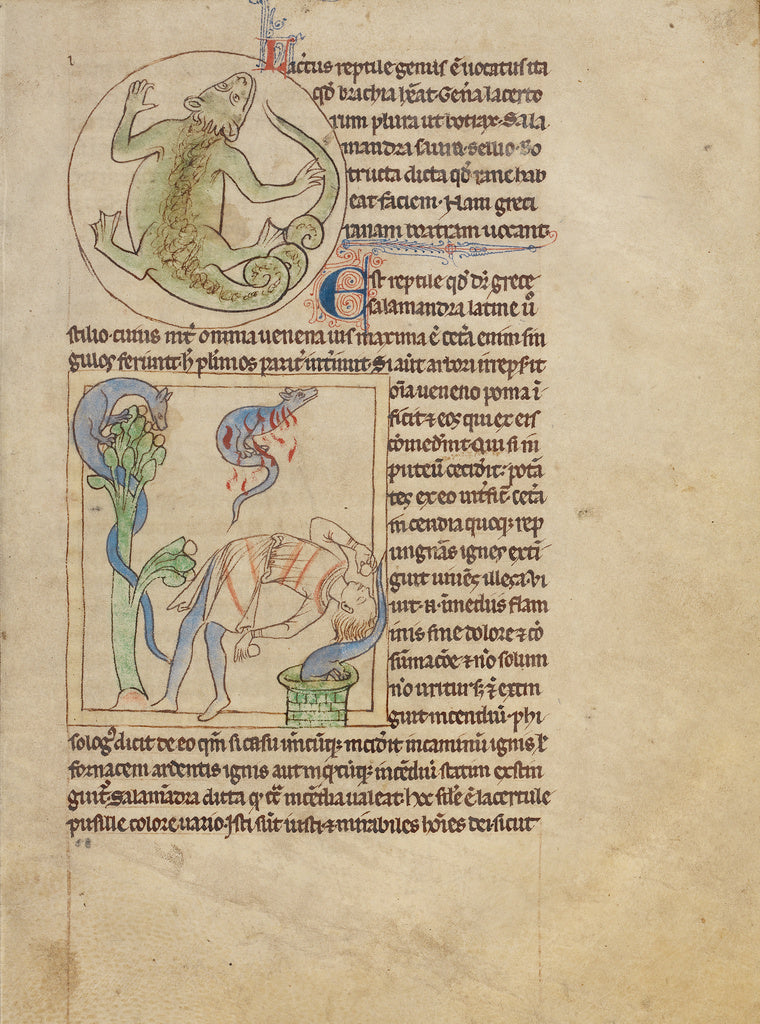 Lactus reptile genus ē uocatus ita
qđ brachia hēat. Geña lacerto
rum plura ut botrax. Sala
mandra saura. sellio. Bo
tructa dicta qđ rane hab
eat faciem. Nam greci
ranam botram uocant.
Est reptile qđ dr̄ grece
salamandra latine ū
stilio. cuius int̄ omnia uenena uis maxima ē. cet̄a enim sin
gulos feriunt. h̄ plimos parit̄ int̄imit. Si aūt arbori irrepsit
oīa ueneno poma ī
ficit. & eos qui ex eis
comedīnt. Qui si in
puteū ceciđit. pota
tes ex eo
incendia quoq; rep
ungnās ignes exti
guit
uit. n. ī medus flam
mis sine dolore & cō
sūmacōe. & nō solum
nō uritur s; & extin
guit incendiū. phi
solog⁹ dicit de eo qm̄ si casu incidit in caminū ignis ł
fornacem ardentis ignis aut incēdiū statim exstin
guit. Salamādra dicta q' cōt̄ incēdia ualeat. hec est lacertule
pusille colore uario. Isti sūt iusti & mirabiles hōies dei. sicut